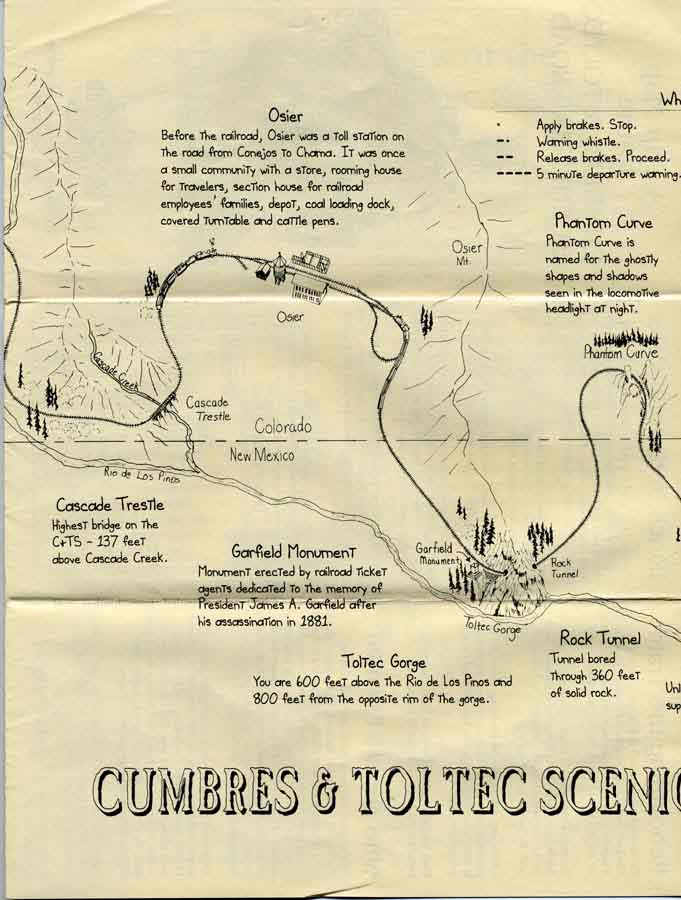 Osier
Before the railroad, Osier was a toll station on
the road from Conejos to Chama. It was once
a small community with a store, rooming house
for travelers, section house for railroad
employees' families, depot, coal loading dock,
covered turntable and cattle pens.
Wh
Apply brakes. Stop.
Warning whistle.
Release brakes. Proceed.
5 minute departure warning.
Phantom Curve
Phantom Curve is
named for the ghostly
shapes and shadows
seen in the locomotive
headlight at night.
Osier
Mt.
Osier
Phantom Curve
Cascade Creek
Cascade
Trestle
Colorado
New Mexico
Rio de Los Pinos
Cascade Trestle
Highest bridge on the
C+TS - 137 feet
above Cascade Creek.
Garfield Monument
Monument erected by railroad ticket
agents dedicated to the memory of
President James A. Garfield after
his assassination in 1881.
Garfield
Monument
Rock
Tunnel
Toltec Gorge
Toltec Gorge
You are 600 feet above the Rio de Los Pinos and
800 feet from the opposite rim of the gorge.
Rock Tunnel
Tunnel bored
through 360 feet
of solid rock.
Unl
sup
CUMBRES & TOLTEC SCENIC